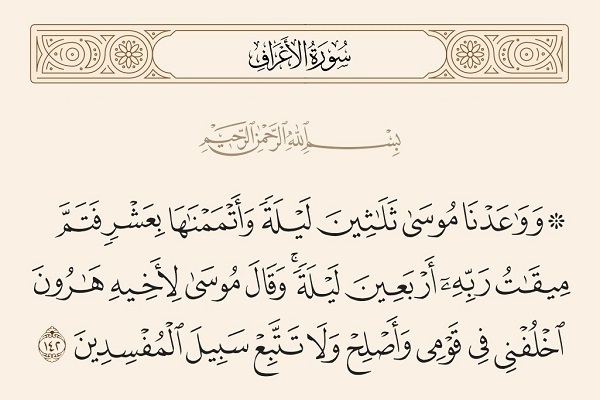 سُورَةُ الأَعْرَافِ
بِسْمِ اللَّهِ الرَّحْمَٰنِ الرَّحِيمِ
۞ وَوَٰعَدْنَا مُوسَىٰ ثَلَٰثِينَ لَيْلَةً وَأَتْمَمْنَٰهَا بِعَشْرٍ فَتَمَّ
مِيقَٰتُ رَبِّهِۦٓ أَرْبَعِينَ لَيْلَةً ۚ وَقَالَ مُوسَىٰ لِأَخِيهِ هَٰرُونَ
ٱخْلُفْنِى فِى قَوْمِى وَأَصْلِحْ وَلَا تَتَّبِعْ سَبِيلَ ٱلْمُفْسِدِينَ ١٤٢